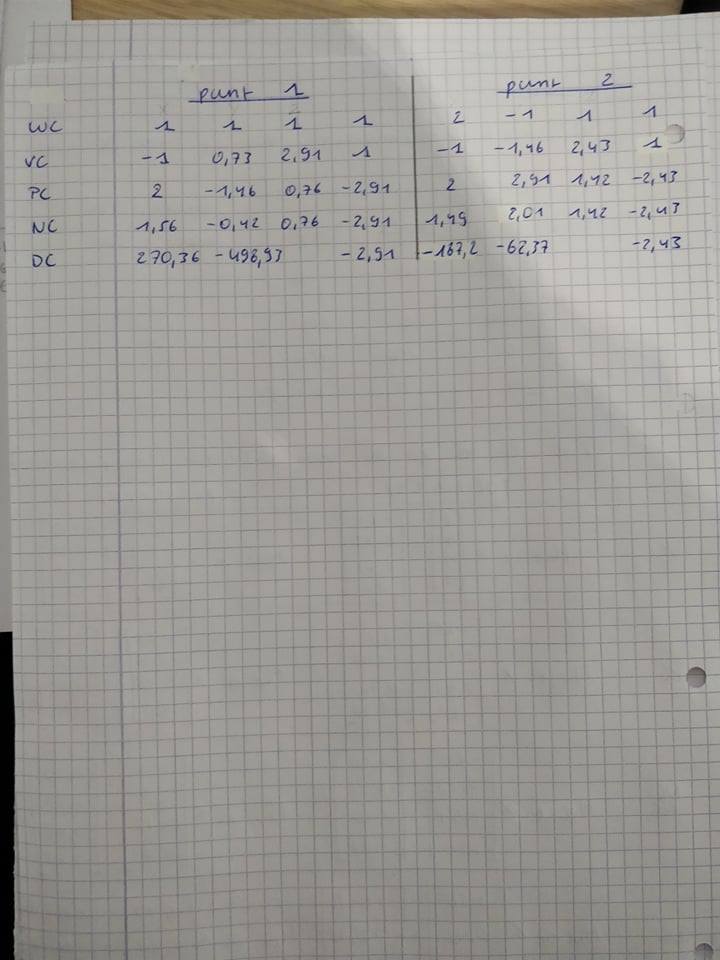 punt 1 punt 2
WC 1 1 1 1 2 -1 1 1
VC -1 0,73 2,91 1 -1 -1,46 2,43 1
PC 2 -1,46 0,76 -2,91 2 2,91 1,42 -2,43
NC 1,56 -0,42 0,76 -2,91 1,49 2,01 1,42 -2,43
DC 270,36 -496,93 -2,91 -167,2 -62,37 -2,43